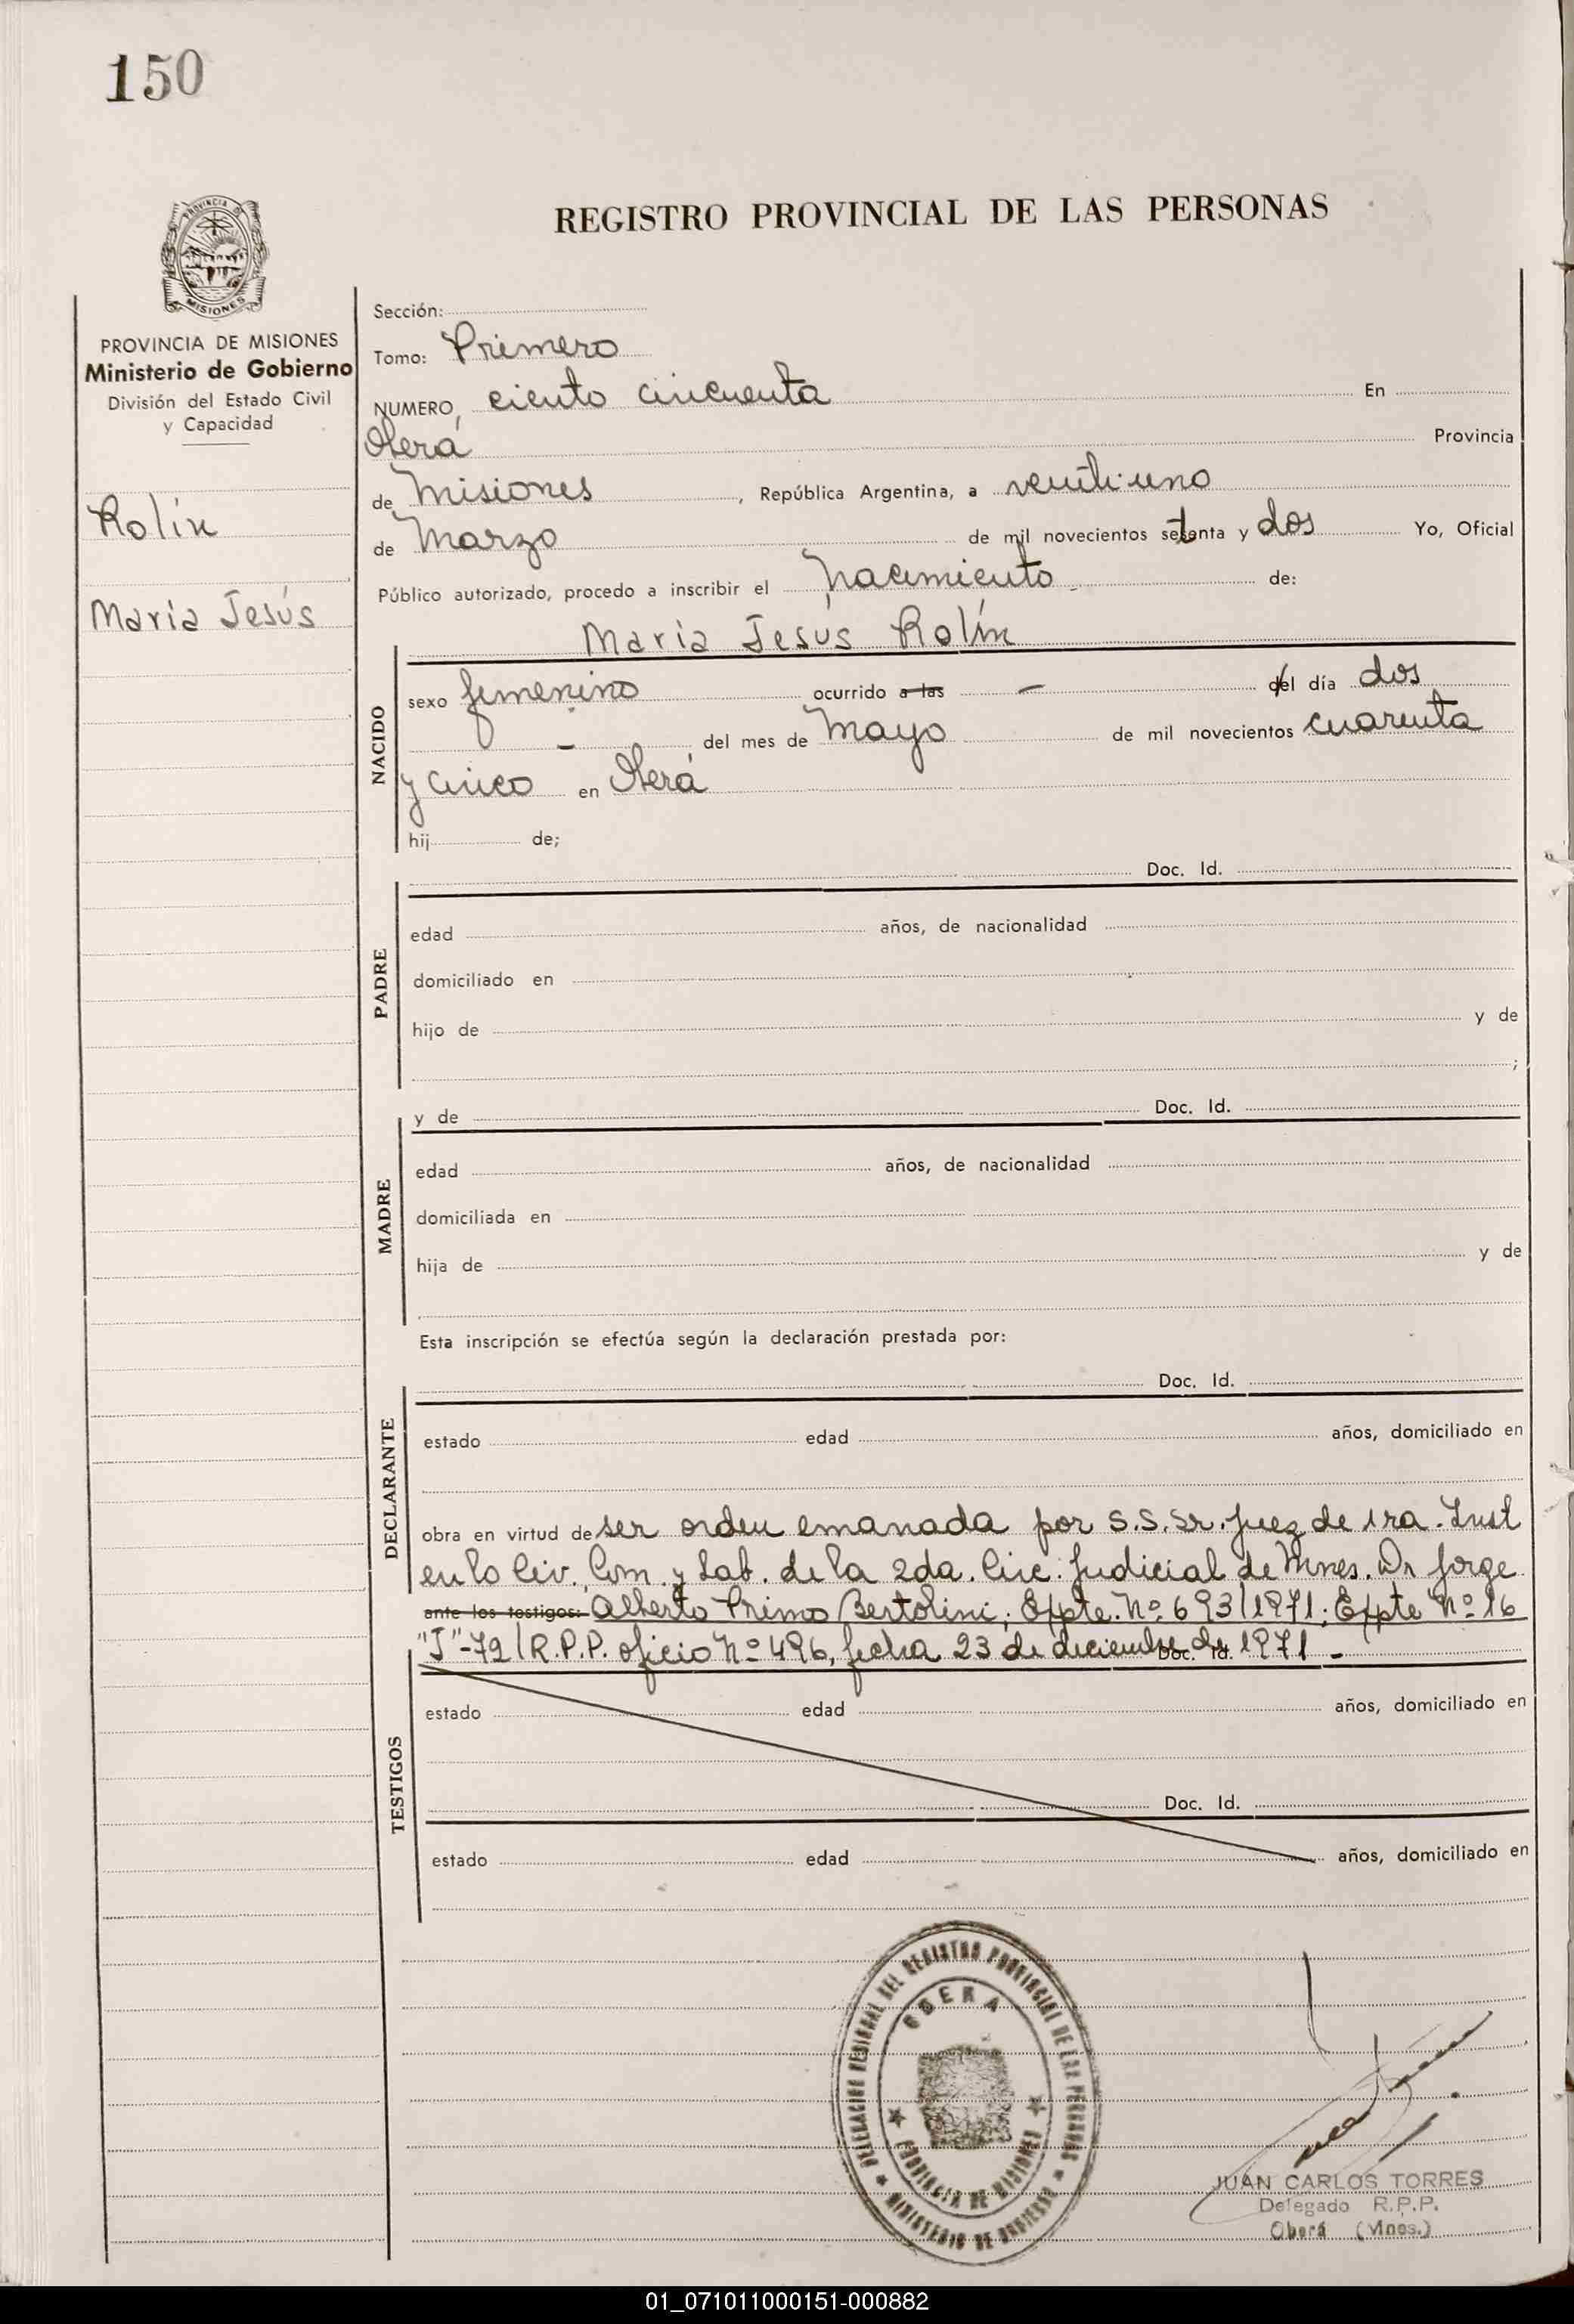 150
PROVINCIA DE MISIONES
REGISTRO PROVINCIAL DE LAS PERSONAS
PROVINCIA DE MISIONES
Ministerio de Gobierno
División del Estado Civil
y Capacidad
Rolín
María Jesús
Sección:
Tomo: Primero
NUMERO, ciento cincuenta En
Oberá Provincia
de Misiones, República Argentina, a veinti-uno
de Marzo de mil novecientos setenta y dos Yo, Oficial
Público autorizado, procedo a inscribir el nacimiento - de:
María Jesús Rolín
NACIDO
sexo femenino ocurrido a las - del día dos
- del mes de Mayo de mil novecientos cuarenta
y cinco en Oberá
hij de;
Doc. Id.
PADRE
edad años, de nacionalidad
domiciliado en
hijo de y de
;
MADRE
y de Doc. Id.
edad años, de nacionalidad
domiciliada en
hija de y de
Esta inscripción se efectúa según la declaración prestada por:
Doc. Id.
DECLARANTE
estado edad años, domiciliado en
obra en virtud de ser orden emanada por S.S. Sr. Juez de 1ra. Inst
en lo Civ. Com. y Lab. de la 2da. Circ. Judicial de Mnes. Dr Jorge
ante los testigos: Alberto Primo Bertolini; Expte. Nº 693/1971; Expte Nº 16
"J"-72/R.P.P. oficio Nº 496, fecha 23 de diciembre de 1971.-
Doc. Id.
TESTIGOS
estado edad años, domiciliado en
Doc. Id.
estado edad años, domiciliado en
DELEGACION REGIONAL DEL REGISTRO PROVINCIAL DE LAS PERSONAS
OBERA
PROVINCIA DE MISIONES
MINISTERIO DE GOBIERNO
JUAN CARLOS TORRES
Delegado R.P.P.
Oberá (Mnes.)
01_071011000151-000882